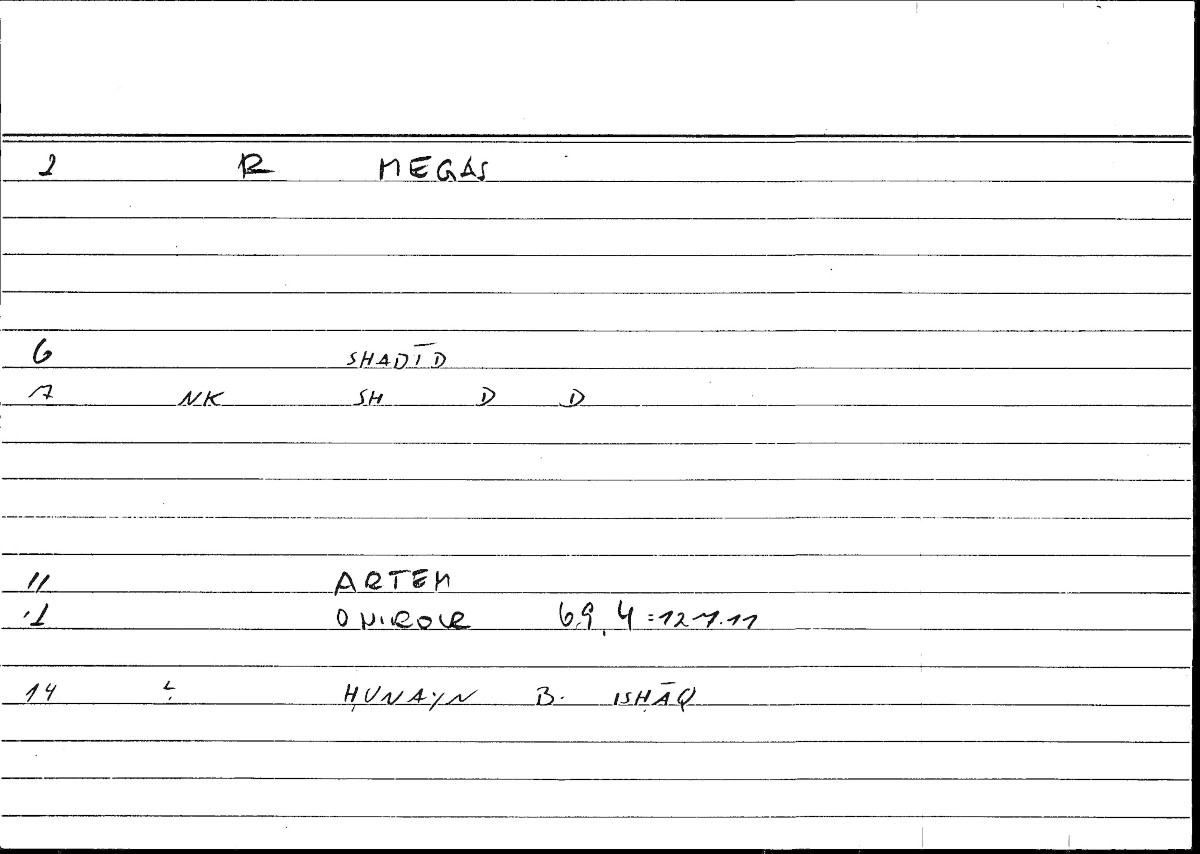 2 R MEGAS
6 SHADĪD
7 NK SH D D
11 ARTEM
ONIROCR 69,4=127.11
14 ḤUNAYN B. ISḤĀQ